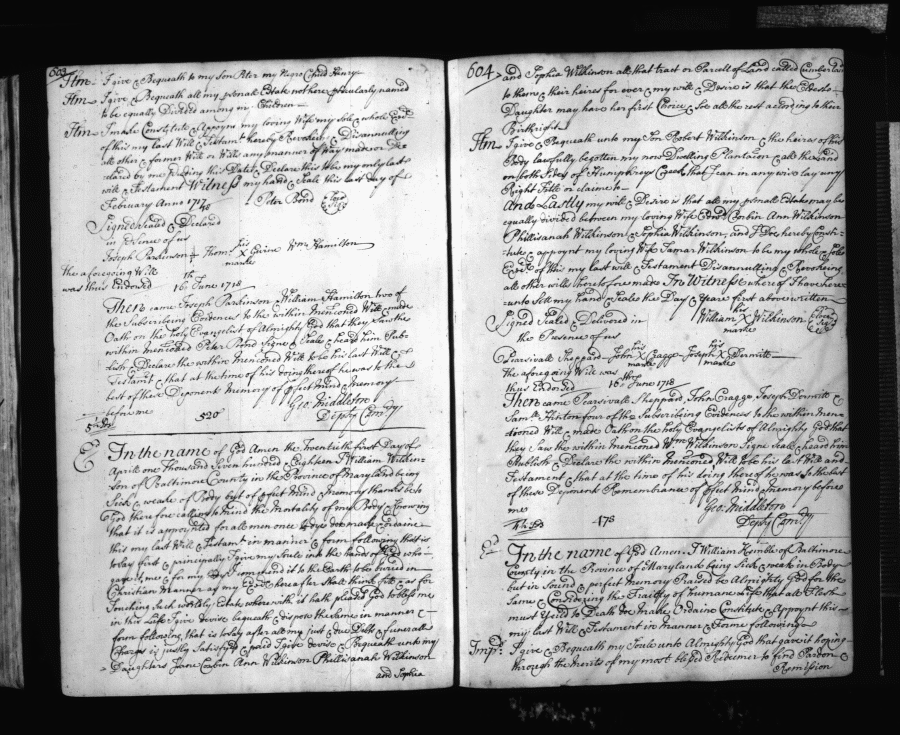 603
Itm: I give & Bequeath to my Son Peter my Negro Child Henry
Itm I give & Bequeath all my p'sonall Estate not here p'ticularly named
to be equally Divided among my Children
Itm I make Constitute & Appoynt my loving Wife my Sole & whole Exec
of this my last Will & Testamt hereby Revokeing & Disannulling
all other & former Will or Wills any manner of way made or De
clared by me p'ceeding this Date & Declare this to be my only last
will & Testament Witness my hand & Seale this last day of
February Anno 1717/18 Peter Bond
Signed Sealed & Declared
in p'sence of us
Joseph Parkinson Thoms his X Guine Wm Hamilton
marke
the aforegoing Will
was thus Endorsed 16th June 1718
There came Joseph Parkinson & William Hamilton two of
the Subscribing Evidences to the within menconed Will & made
Oath on the holy Evangelist of Almighty God that they Saw the
within menconed Peter Bond Signe & Seale & heard him Pub-
lish & Declare the within Menconed Will to be his last Will &
Testamt & that at the time of his doing thereof he was to the
best of these Deponents Memory of p'fect Mind & Memory
before me Geo: Middleton
Depty Comry
520
In the name of God Amen the Twentieth first Day of
Aprill one Thousand Seven hundred & Eighteen I William Wilkin-
son of Baltimore County in the Province of Maryland being
Sick & weake of Body but of p'fect Mind & Memory thanks be to
God therefore calling to mind the Mortality of my Body & knowing
that it is appoynted for all men once to dye do make & Ordaine
this my last Will & Testamt in manner & form following that is
to say first & principally I give my Soule into the hands of God who
gave it me & for my Body I commend it to the Earth to be buried in
Christian Manner as my Exec hereafter Shall think fitt & as for
Touching Such worldly Estate wherewith it hath pleased God to bless me
in this Life I give devise bequeath & dispose the Same in manner &
form following that is to Say after all my just due Debts & funerall
Charges is justly Satisfyed & paid I give devise & Bequeath unto my
Daughters Jane Corbin Ann Wilkinson Phillisanah Wilkinson
and Sophia
604
and Sophia Wilkinson all that tract or Parcell of Land called Cumberland
to them & their heires for ever my will & Desire is that the Eldest
Daughter may have her first Choice & So all the rest according to their
Birthright
Itm I give & Bequeath unto my Son Robert Wilkinson & the heires of his
Body lawfully begotten my now Dwelling Plantation & all the Land
on both Sides of Humphreys Creek that I can in any wise lay any
Right Title or claime to
And Lastly my will & Desire is that all my p'sonall Estate may be
equally divided between my loving Wife & Corbin Ann Wilkinson
Phillisanah Wilkinson & Sophia Wilkinson, and I Doe hereby Consti-
tute & appoynt my loving Wife Tamar Wilkinson to be my whole & Sole
Exec of this my last will & Testament Disannulling & Revokeing
all other wills heretofore made In Witness whereof I have here-
unto Sett my hand & Seale the Day & Yeare first above written
Signed Sealed & Delivered in William his X Wilkinson
the Presence of us marke
Pearsivall Sheppard John his X Cragge Joseph his X Dernitt
marke marke
the aforegoing Will was
thus Endorsed 16th June 1718
There came Pearsivall Sheppard, John Cragge Joseph Dernitt &
Samll Hinton four of the Subscribing Evidences to the within Men-
coned Will & made Oath on the holy Evangelists of Almighty God that
they Saw the within menconed Wm Wilkinson Signe Seale & heard him
Publish & Declare the within Menconed Will to be his last Will and
Testament & that at the time of his doing thereof he was to the best
of these Deponents Remembrance of p'fect Mind & Memory before
me Geo: Middleton
Depty Comry
178
In the name of God Amen I William Kemble of Baltimore
County in the Province of Maryland being Sick & weak in Body
but in Sound & perfect Memory Praised be Almighty God for the
Same & Considering the frailty of humane life & that all Flesh
must Yeild to Death do make & Ordaine Constitute & Appoynt this
my last Will & Testament in Manner & Forme following
Impr: I give & Bequeath my Soule unto Almighty God that gave it hoping
through the merits of my most blessed Redeemer to find Pardon &
Remission